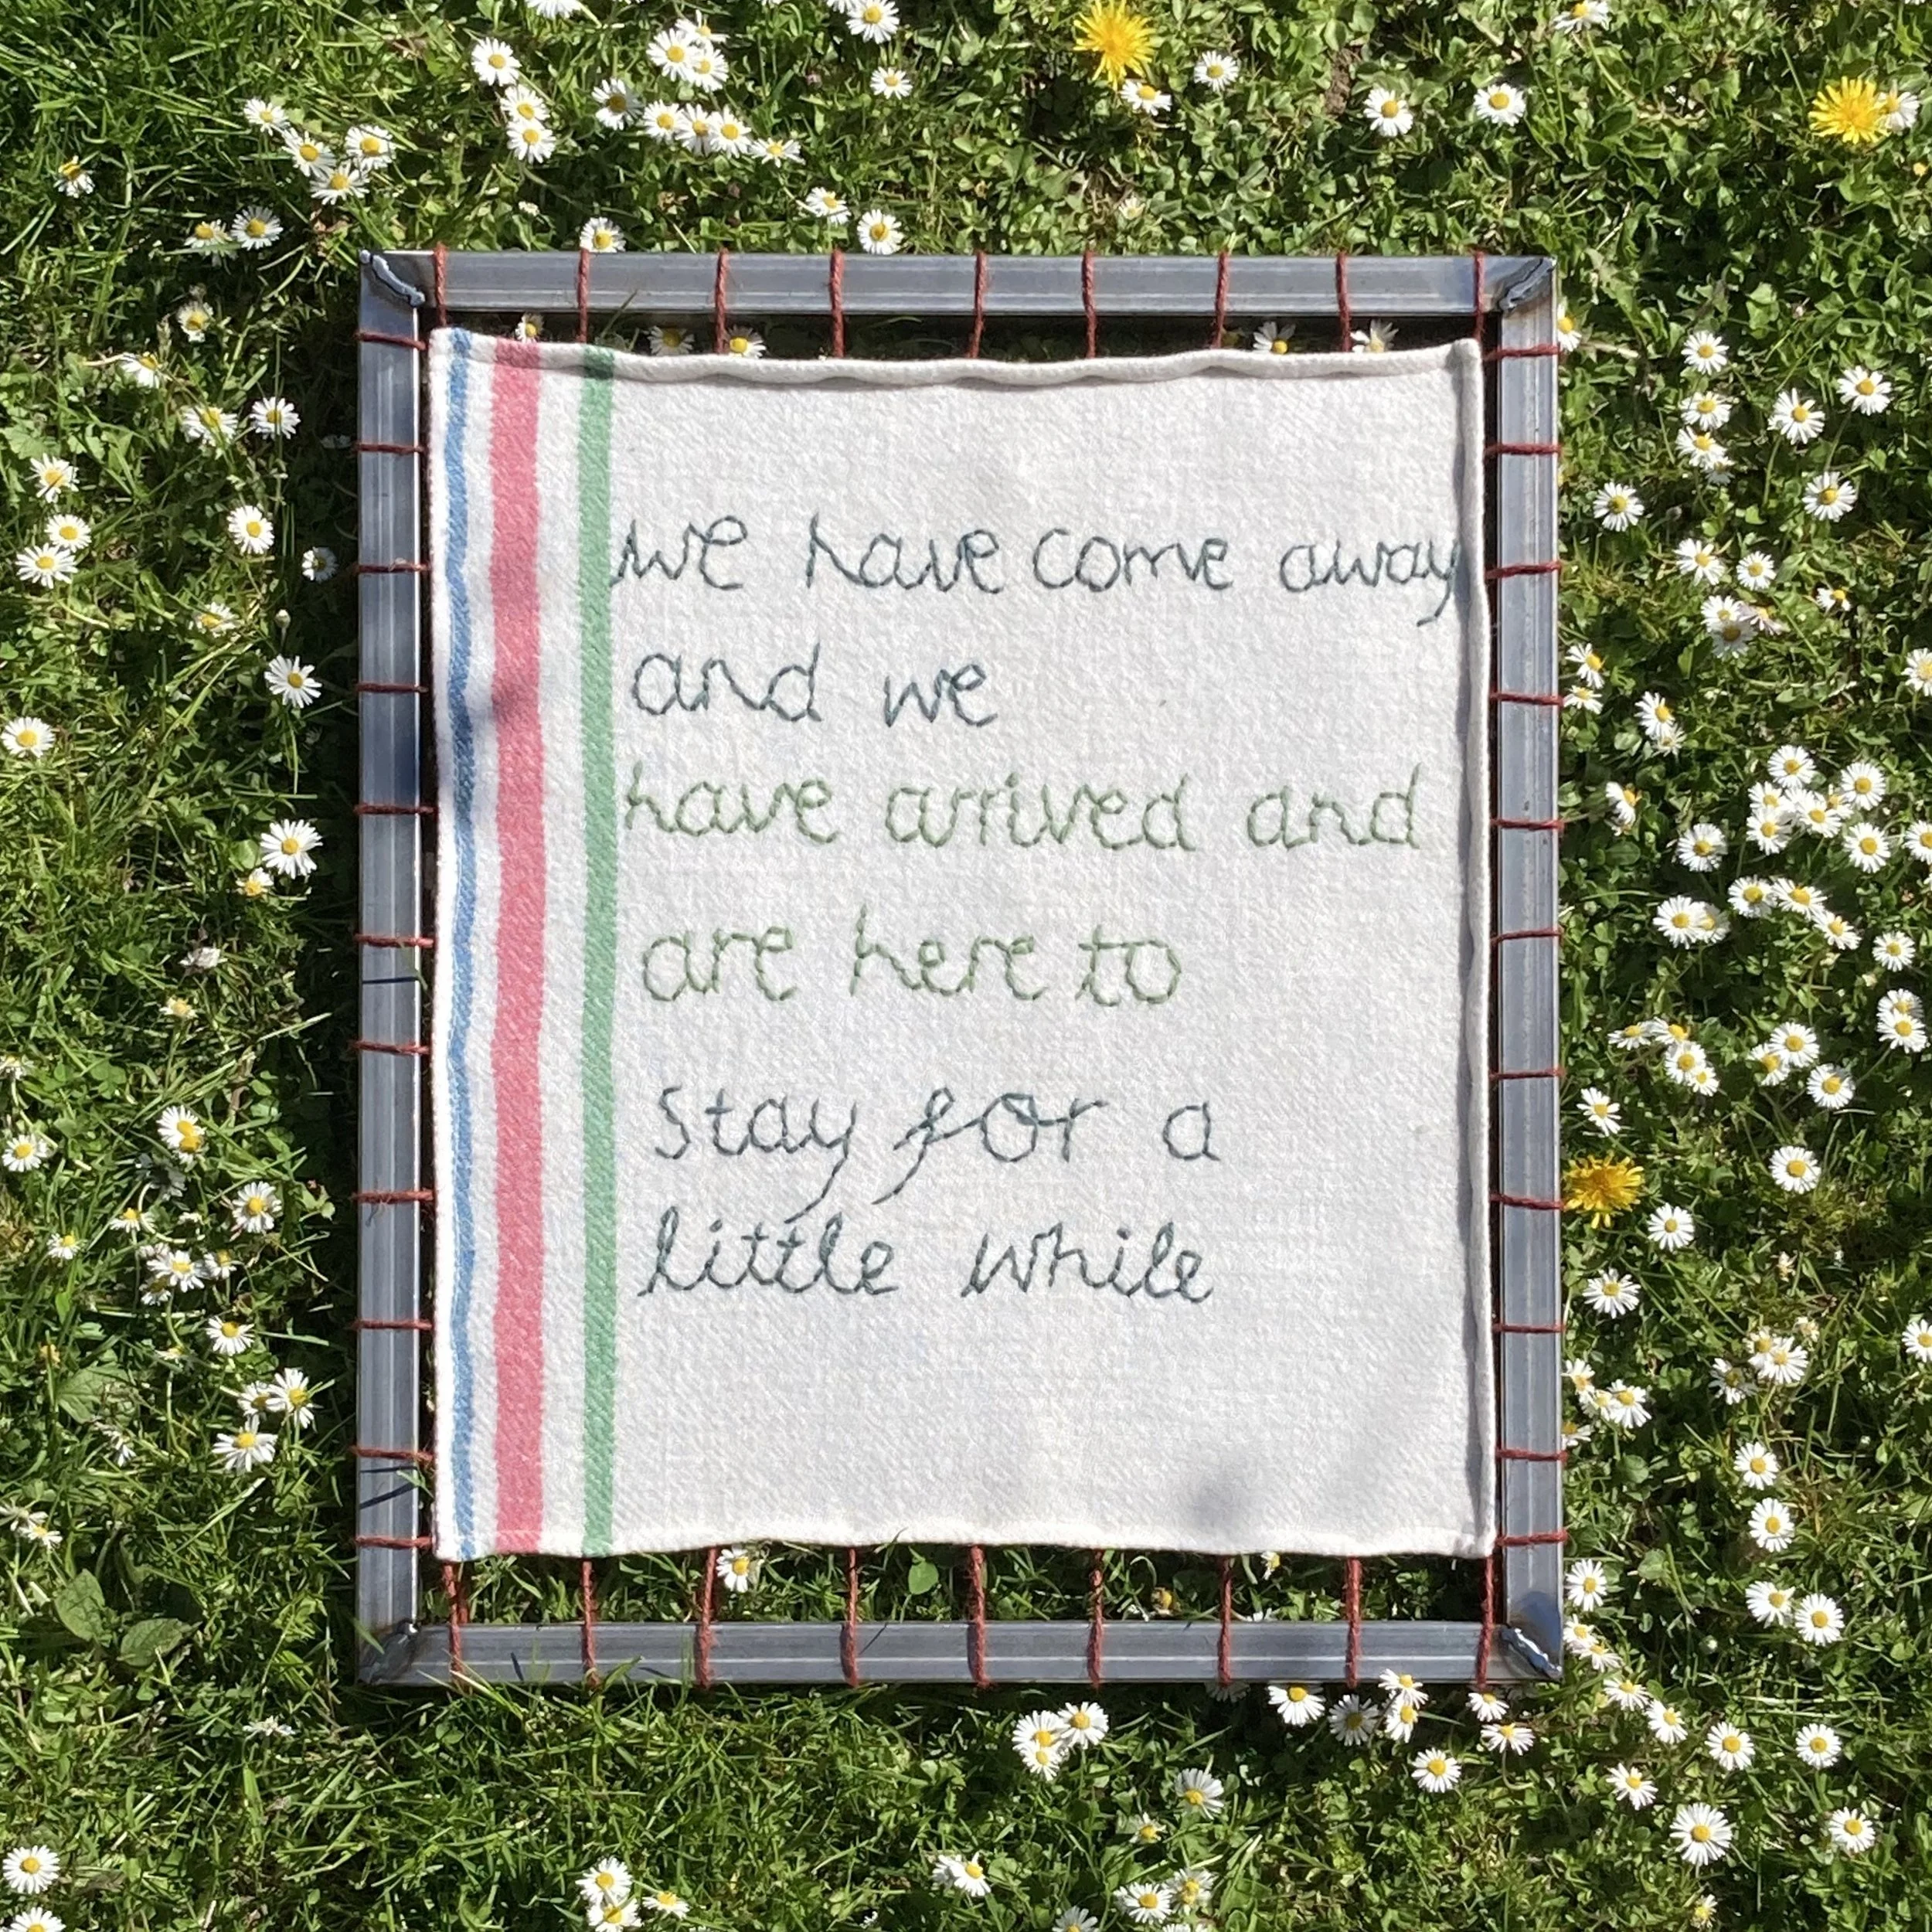 we have come away
and we
have arrived and
are here to
stay for a
little while